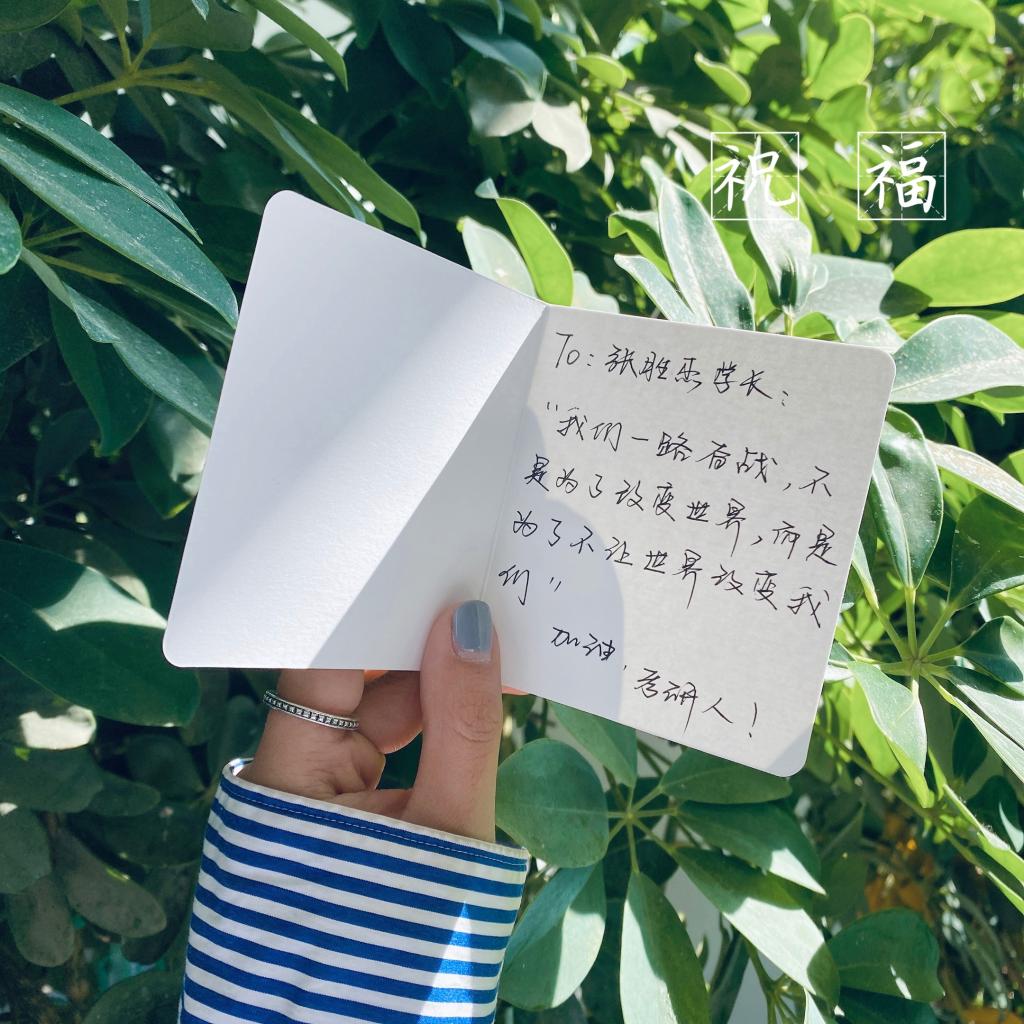 祝 福
To：张胜杰学长：
“我们一路奋战，不
是为了改变世界，而是
为了不让世界改变我
们”
加油，考研人！